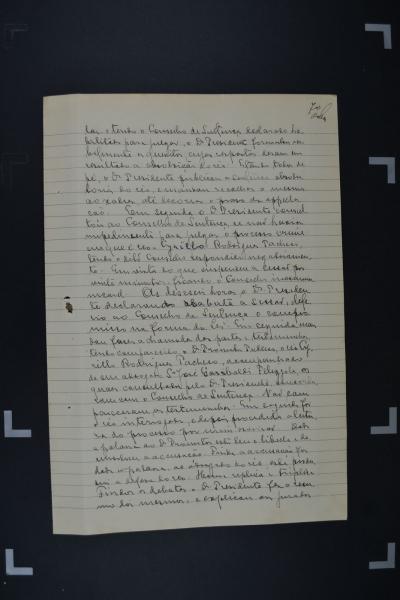 das e tendo o Conselho de Sentença declarado ha-
bilitado para julgar, o Dr Presidente formulou ver-
balmente os quesitos cujas respostas deram em
resultado a absolvição do réo. Estando todos de
pé, o Dr Presidente publicou a sentença absolu-
toria do réo, e mandou recolher o mesmo
ao xadrez, até decorrer o praso da appella-
ção. Em seguida o Dr Presidente consul-
tou ao Conselho de Sentença se não havia
impedimento para julgar o processo crime
em que é réo Cyrillo Rodrigues Pacheco,
tendo o dito Conselho respondido negativamen-
te. Em vista do que suspendeu a sessão por
vinte minutos, ficando o Conselho incommu-
nicavel. Às dezeseis horas o Dr Presiden-
te declarando aberta a sessão, defe-
rio ao Conselho de Sentença o compro-
misso na forma da lei. Em seguida man-
dou fazer a chamada das partes e testemunhas,
tendo comparecido o Dr Promotor Publico, o réo Cy-
rillo Rodrigues Pacheco, acompanhado
de seu advogado Sr José Garibaldi Filizzola, os
quaes consultados pelo Dr Presidente,
com o Conselho de Sentença. Não com-
pareceram as testemunhas. Em seguida foi
o réo interrogado, e depois procedida a leitu-
ra do processo por mim escrivão. Dada
a palavra ao Dr Promotor este leu o libello e de-
senvolveu a accusação. Finda a accusação foi
dada a palavra ao advogado do réo, que produ-
ziu a defesa do réo. Houve replica e treplica.
Findos os debates o Dr Presidente fez o resu-
mo dos mesmos, e explicou aos jurados